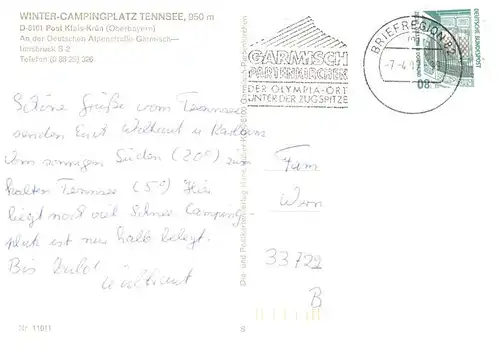 WINTER-CAMPINGPLATZ TENNSEE, 950 m
D-8101 Post Klais-Krün (Oberbayern)
An der Deutschen Alpenstraße Garmisch—
Innsbruck B-2
Telefon (0 88 25) 326
GARMISCH
PARTENKIRCHEN
DER OLYMPIA-ORT
UNTER DER ZUGSPITZE
BRIEFREGION 82
08
DEUTSCHE BUNDESPOST
Schöne Grüße vom Tennsee
senden Euch Waltraut u
Vom sonnigen Süden (20°) zum
kalten Tennsee (5°) Hier
liegt noch viel Schnee Camping
platz ist nur halb belegt.
Bis bald!
Waltraut
Fam
33729
B
Nr. 11011